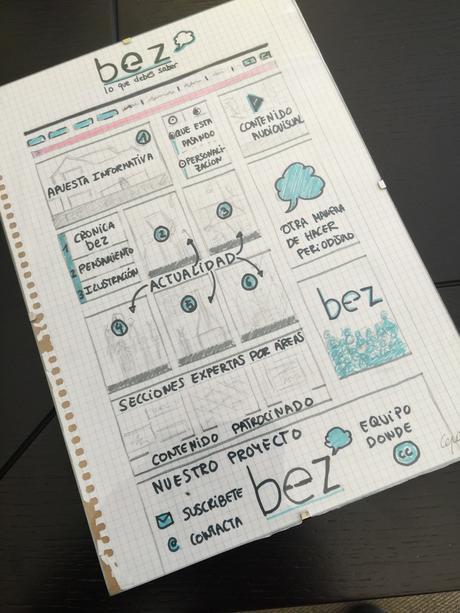 bez
lo que debes saber
1
APUESTA INFORMATIVA
QUE ESTA
PASANDO
PERSONALI-
ZACION
CONTENIDO
AUDIOVISUAL
1 CRONICA
bez
2 PENSAMIENTO
3 ILUSTRACIÓN
2
3
OTRA MANERA
DE HACER
PERIODISMO
ACTUALIDAD
4
5
6
bez
SECCIONES EXPERTAS POR ÁREAS
CONTENIDO PATROCINADO
NUESTRO PROYECTO
SUSCRIBETE
@ CONTACTA
bez
EQUIPO
DONDE
cc